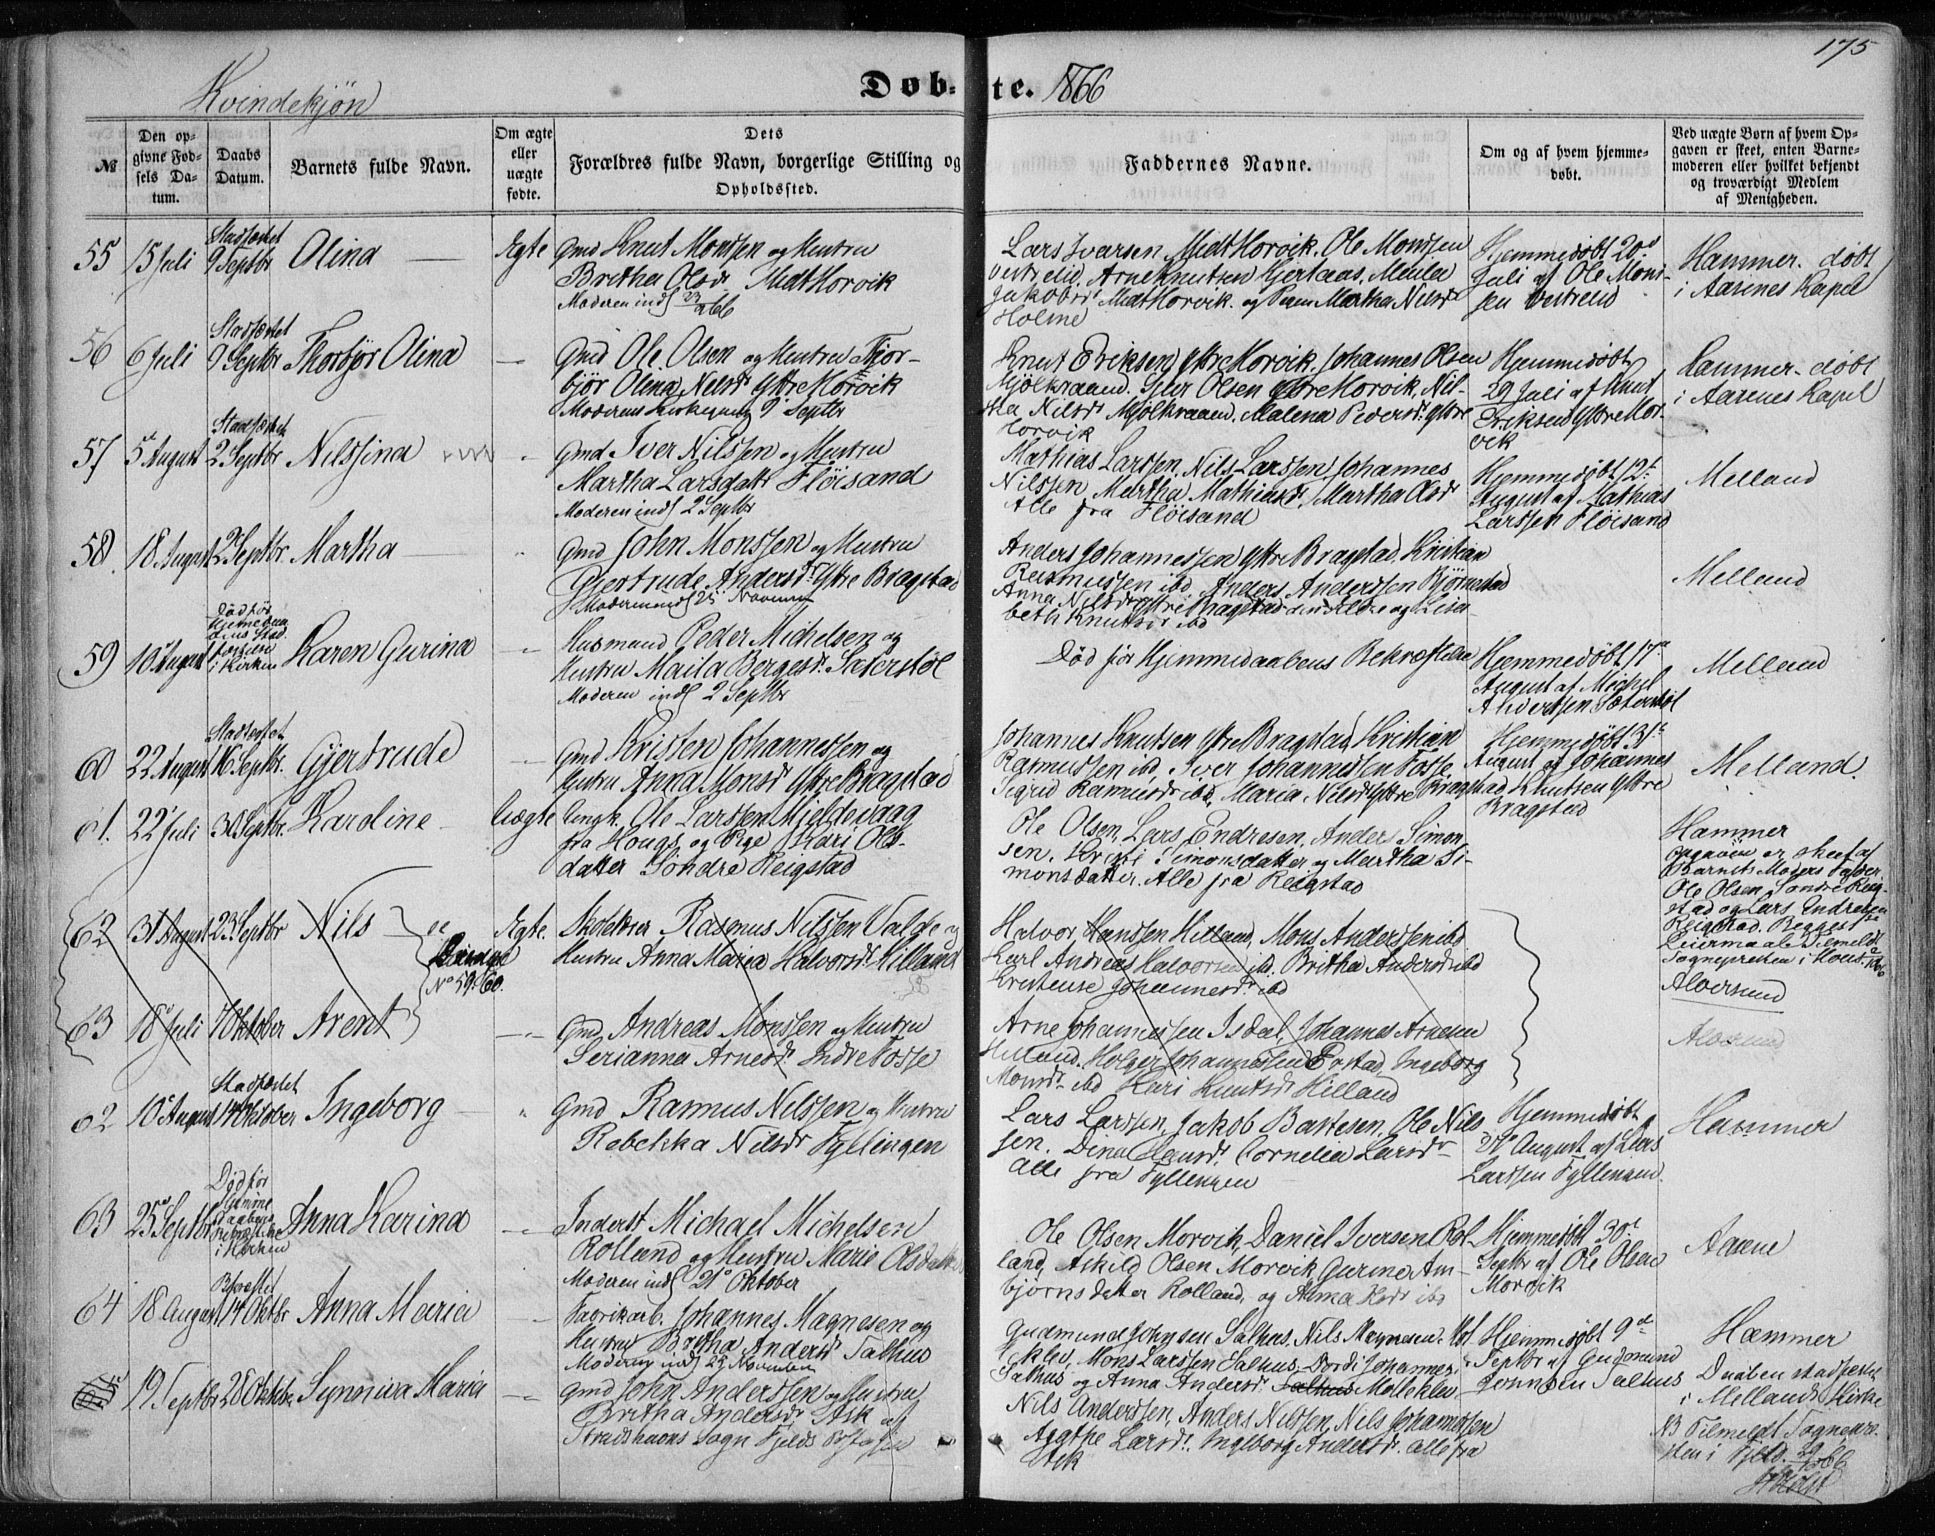 175
Kvindekjön
Døb-te. 1866
№
Den opgivne Fødsels Datum.
Daabs Datum.
Barnets fulde Navn.
Om ægte eller uægte fødte.
Dets Forældres fulde Navn, borgerlige Stilling og Opholdssted.
Faddernes Navne.
Om og af hvem hjemmedøbt.
Ved uægte Børn af hvem Opgaven er skeet, enten Barnemoderen eller hvilket bekjendt og troværdigt Medlem af Menigheden.
55 15 Juli Stadfæstet 9 Septbr Olina Ægte
Gmd Knut Monssen og Hustru
Britha Olsdr MidtHorvik
Moderen indl
Lars Ivarsen MidtHorvik. Ole Monssen
Arne Knutsen
Jakobsdr MidtHorvik. og Martha Nilsdr
Holme
Hjemmedøbt 20de
Juli af Ole Mons-
sen
Hammer. døbt
i Aasenes Kapel
56 6 Juli Stadfæstet 9 Septbr Thorbjør Olina
Gmd Ole Olsen og Hustru Thor-
björ Olena Nilsdr YttreMorvik
Moderens Kirkegang 9 Septbr
Knut Eriksen YttreMorvik. Johannes Olsen
Mjølkraaen. Olsen YttreMorvik, Nil-
Nilsdr Mjølkraaen. Malena Pedersdr Yttre
Horvik
Hjemmedøbt
29 Juli af Knut
Eriksen YttreMor-
vik
Hammer. døbt
i Aasenes Kapel
57 5 August Stadfæstet 2 Septbr Nilssina
Gmd Iver Nilssen og Hustru
Martha Larsdatter Fløisand
Moderen indl 2 Septbr
Mathias Larssen, Nils Larssen, Johannes
Nilssen, Martha Mathiasdr, Martha Olsdr
Alle fra Fløisand
Hjemmedøbt 12te
August af Mathias
Larssen Fløisand
Melland
58 18 August 2 Septbr. Martha
Gmd John Monssen og Hustru
Gjertrude Andersdr Yttre Bragstad
Anders Johannessen YttreBragstad, Kristian
Rasmussen ibd, Anders Anderssen Bjørnestad
Anna Nilsdr YttreBragstad og Lisa-
beth Knutsdr ibd
Melland
59 10 August Død før i Kirken Karen Gurina
Husmand Peder Michelsen og
Hustru Maila Bergesdr Sæterstøl
Moderen indl 2 Septbr
Død før Hjemmedaabens Bekræftelse
Hjemmedøbt 17de
August af Michel
Andersen Sæterstøl
Melland
60 22 August Stadfæstet 16 Septbr. Gjertrude
Gmd Kristen Johannessen og
Hustru Anna Monsdr YttreBragstad
Johannes Knutsen YttreBragstad, Kristian
Rasmussen ibd, Iver Johannessen Fosse
Sigrid Rasmusdr ibd, Maria Nilsdr Yttre Bragstad
Hjemmedøbt 31te
August af Johannes
Knutsen Yttre
Bragstad
Melland.
61. 22 Juli 30 Septbr. Karoline Uægte
Ungk. Ole Larssen Mjeldevaag
fra Hougs og Pige Kari Ols-
datter Søndre Reigstad
Ole Olsen, Lars Endresen, Anders Simon-
sen, Simonsdatter og Martha Si-
monsdatter, Alle fra Reigstad
Hammer
Opgaven er skeet af
Barnets Moders Fader
Ole Olsen Søndre Reig-
stad og Lars Endresen
Reigstad. Begges
Leiermaal. Tilmeldt
Sognepresten i Hous.
62 31 August 23 Septbr Nils Ægte.
Skolelærer Rasmus Nilssen Valde og
Hustru Anna Maria Halvorsdr Hilland
No 59 & 60.
Halvor Hanssen Hilland, Mons Anderssen ibd
Carl Andreas Halvorsen ibd. Britha Andersdr ibd
Johannesdr. ibd
Alversund
63 18 Juli 7 Oktober Arent
Gmd Andreas Monssen og Hustru
Serianna Arnesdr Indre Fosse
Arne Johannessen Isdal, Johannes Arnesen
Hilland. Holger Johannessen Erstad, Ingeborg
Monsdr ibd Kari Knutsdr Hilland
Alversund
62 10 August Stadfæstet 14 Oktober Ingeborg
Gmd Rasmus Nilssen og Hustru
Rebekka Nilsdr Fyllingen
Lars Larssen, Jakob Baltesen, Ole Nils-
sen, Dina Clausdr, Cornelia Larsdr
alle fra Fyllingen
Hjemmedøbt
August af Lars
Larssen Fyllingen.
Hammer
63 25 Septbr Død før Hjemmedaabens i Kirken Anna Karina
Inderst Michael Michelsen
Rolland og Hustru Marie Olsdatter
Moderen indl 21 Oktober
Ole Olsen Morvik, Daniel Iversen Rol-
land, Askild Olsen Morvik Gurine Am-
bjørnsdatter Rolland, og ibd
Hjemmedøbt 30te
Septbr af Ole Olsen
Morvik
Aasene
64 18 August Bekræftet 14 Oktbr Anna Maria
Fabrikarb. Johannes Magnesen og
Hustru Britha Andersdr Salhus
Moderen indl 29 November
Gudmund Johnsen Salhus, Nils Magnesen
Mons Larssen Salhus, Dordi Johannes-
Salhus og Anna Andersdr
Hjemmedøbt 9de
Septbr af Gudmund
Johnsen Salhus
Hammer
19 Septbr 28 Oktbr Synniva Maria
Gmd John Anderssen og Hustru
Britha Andersdr Ask af
Strudshavns Sogn Fjelds
Nils Anderssen, Anders Nilssen, Nils Johannessen
Agathe Larsdr. Ingeborg Andersdr. alle fra
Ask
Daaben stadfæstet
i Mellands Kirke
NB Tilmeldt Sognepre-
sten i Fjeld.